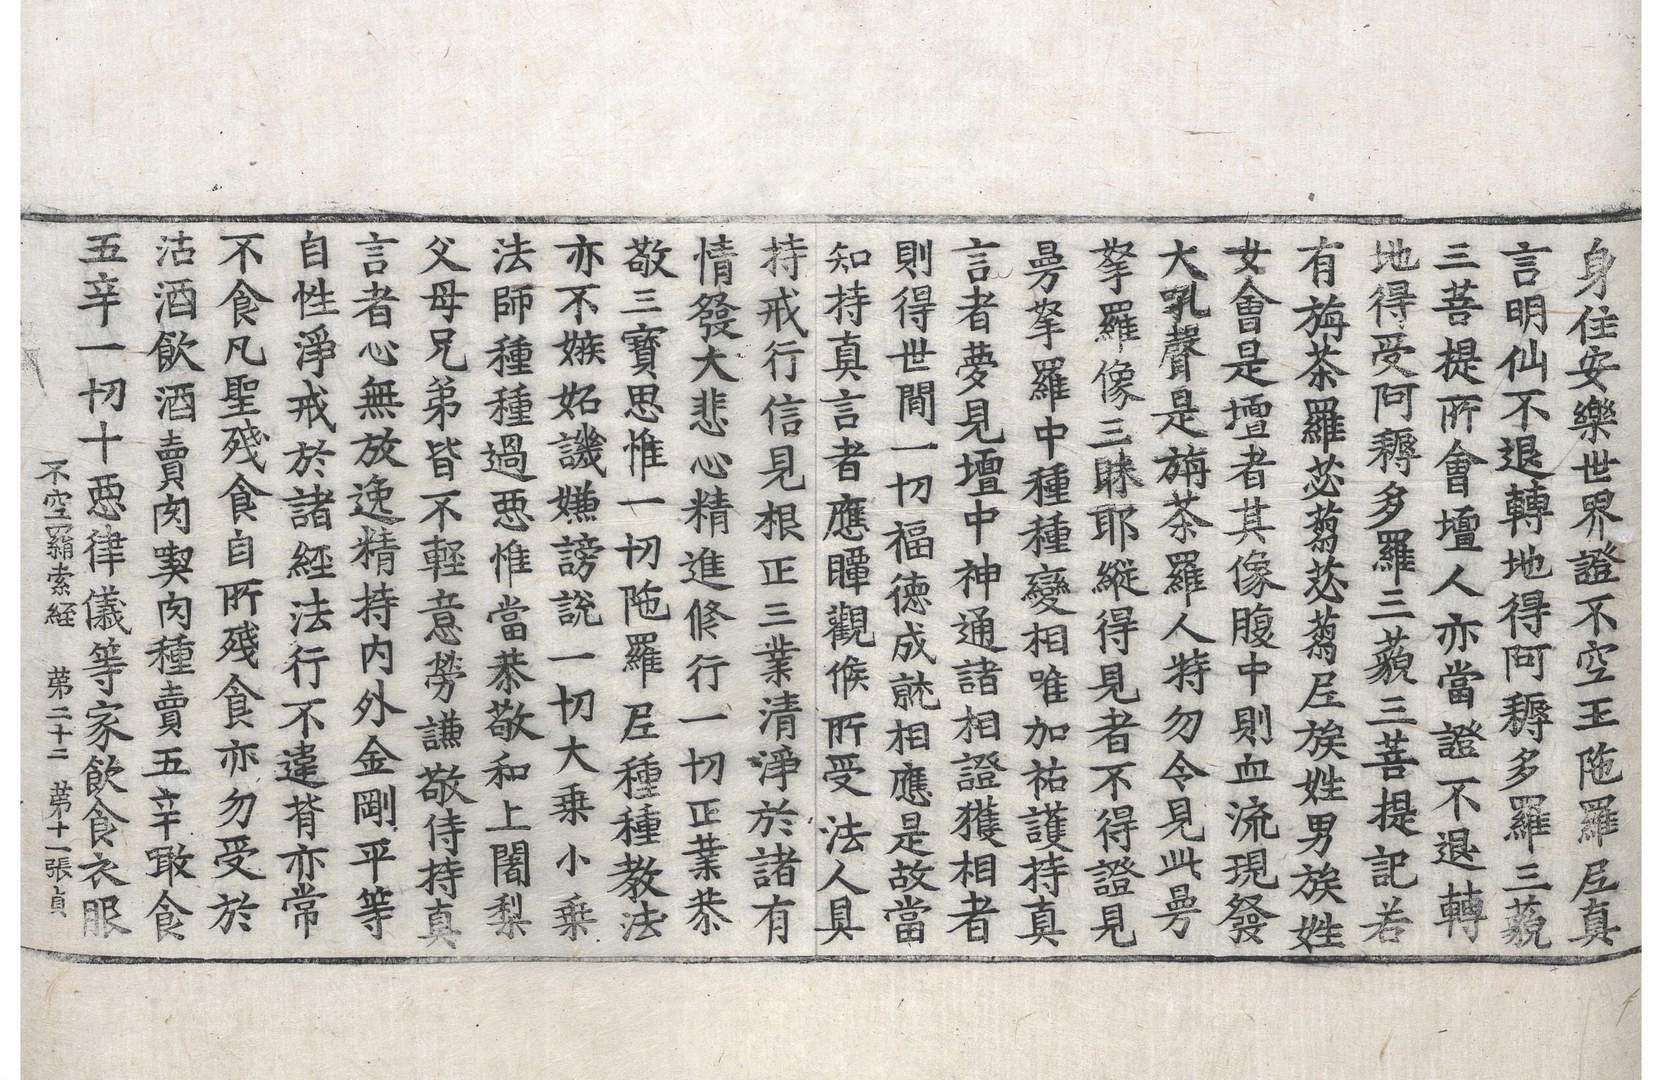 身住安樂世界證不空王陁羅尼真
言明仙不退轉地得阿耨多羅三藐
三菩提所會壇人亦當證不退轉
地得受阿耨多羅三藐三菩提記若
有旃茶羅苾蒭苾蒭尼族姓男族姓
女會是壇者其像腹中則血流現發
大吼聲是旃茶羅人特勿令見此曼
拏羅像三昧耶縱得見者不得證見
曼拏羅中種種變相唯加祐護持真
言者夢見壇中神通諸相證獲相者
則得世間一切福德成就相應是故當
知持真言者應瞫觀候所受法人具
持戒行信見根正三業清淨於諸有
情發大悲心精進修行一切正業恭
敬三寶思惟一切陁羅尼種種教法
亦不嫉妬譏嫌謗說一切大乘小乘
法師種種過惡惟當恭敬和上闍梨
父母兄弟皆不輕意勞謙敬侍持真
言者心無放逸精持內外金剛平等
自性淨戒於諸經法行不違背亦常
不食凡聖殘食自所殘食亦勿受於
沽酒飲酒賣肉喫肉種賣五辛噉食
五辛一切十惡律儀等家飲食衣服
不空羂索經　第二十二　第十一張 貞